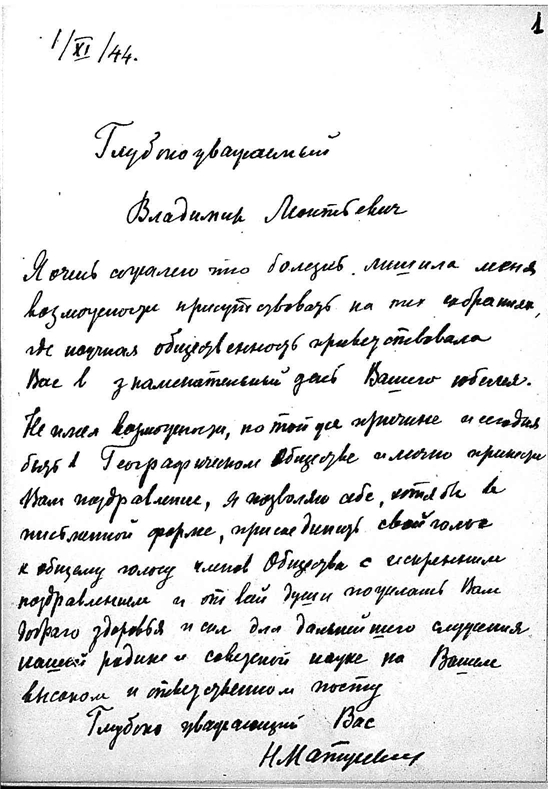 1
1/XI/44.
Глубокоуважаемый
Владимир Леонтьевич
Я очень сожалею что болезнь лишила меня
возможности присутствовать на тех собраниях,
где научная общественность приветствовала
Вас в знаменательный день Вашего юбилея.
Не имея возможности, по той же причине и сегодня
быть в Географическом Обществе и лично принести
Вам поздравление, я позволяю себе, хотя бы в
письменной форме, присоединить свой голос
к общему голосу членов Общества с искренним
поздравлением и от всей души пожелать Вам
добраго здоровья и сил для дальнейшего служения
нашей родине и советской науке на Вашем
высоком и ответственном посту
Глубоко уважающий Вас
Н Матусевич